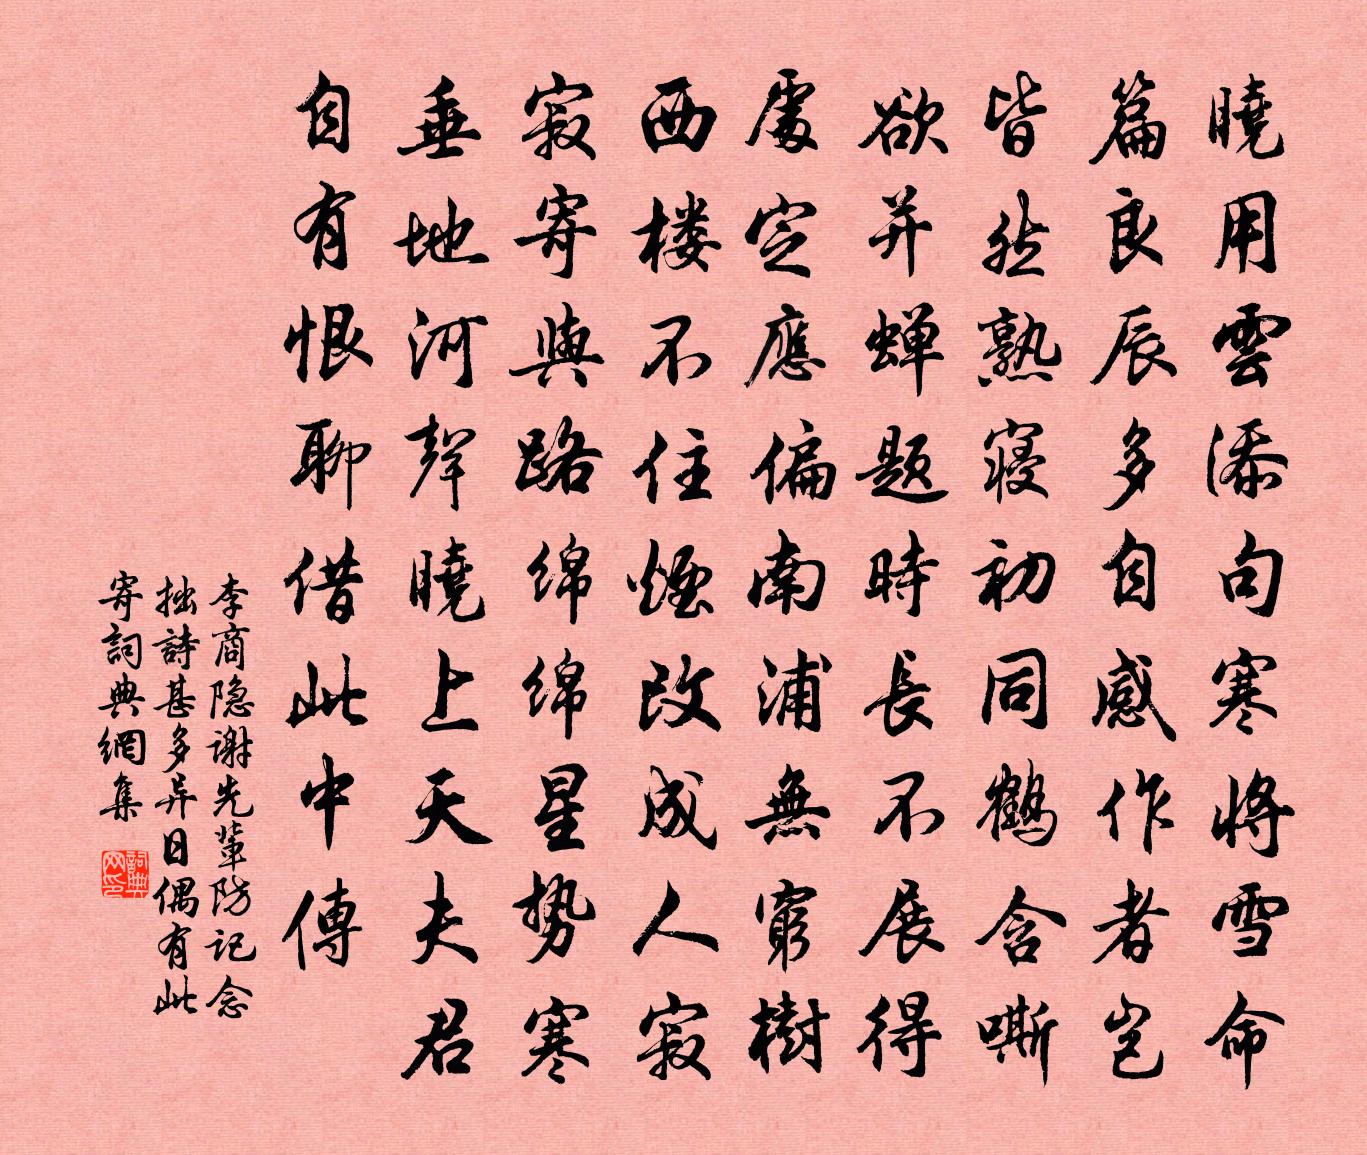 曉用雲添句寒將雪命
篇良辰多自感作者豈
皆然熟寢初同鶴含嘶
欲并蝉题時長不展得
處定應偏南浦無窮樹
西楼不住煙改成人寂
寂寄與路绵绵星势寒
垂地河聲曉上天夫君
自有恨聊借此中傳
李商隐謝先輩防記念
拙詩甚多异日偶有此
寄詞典網集
詞典网印